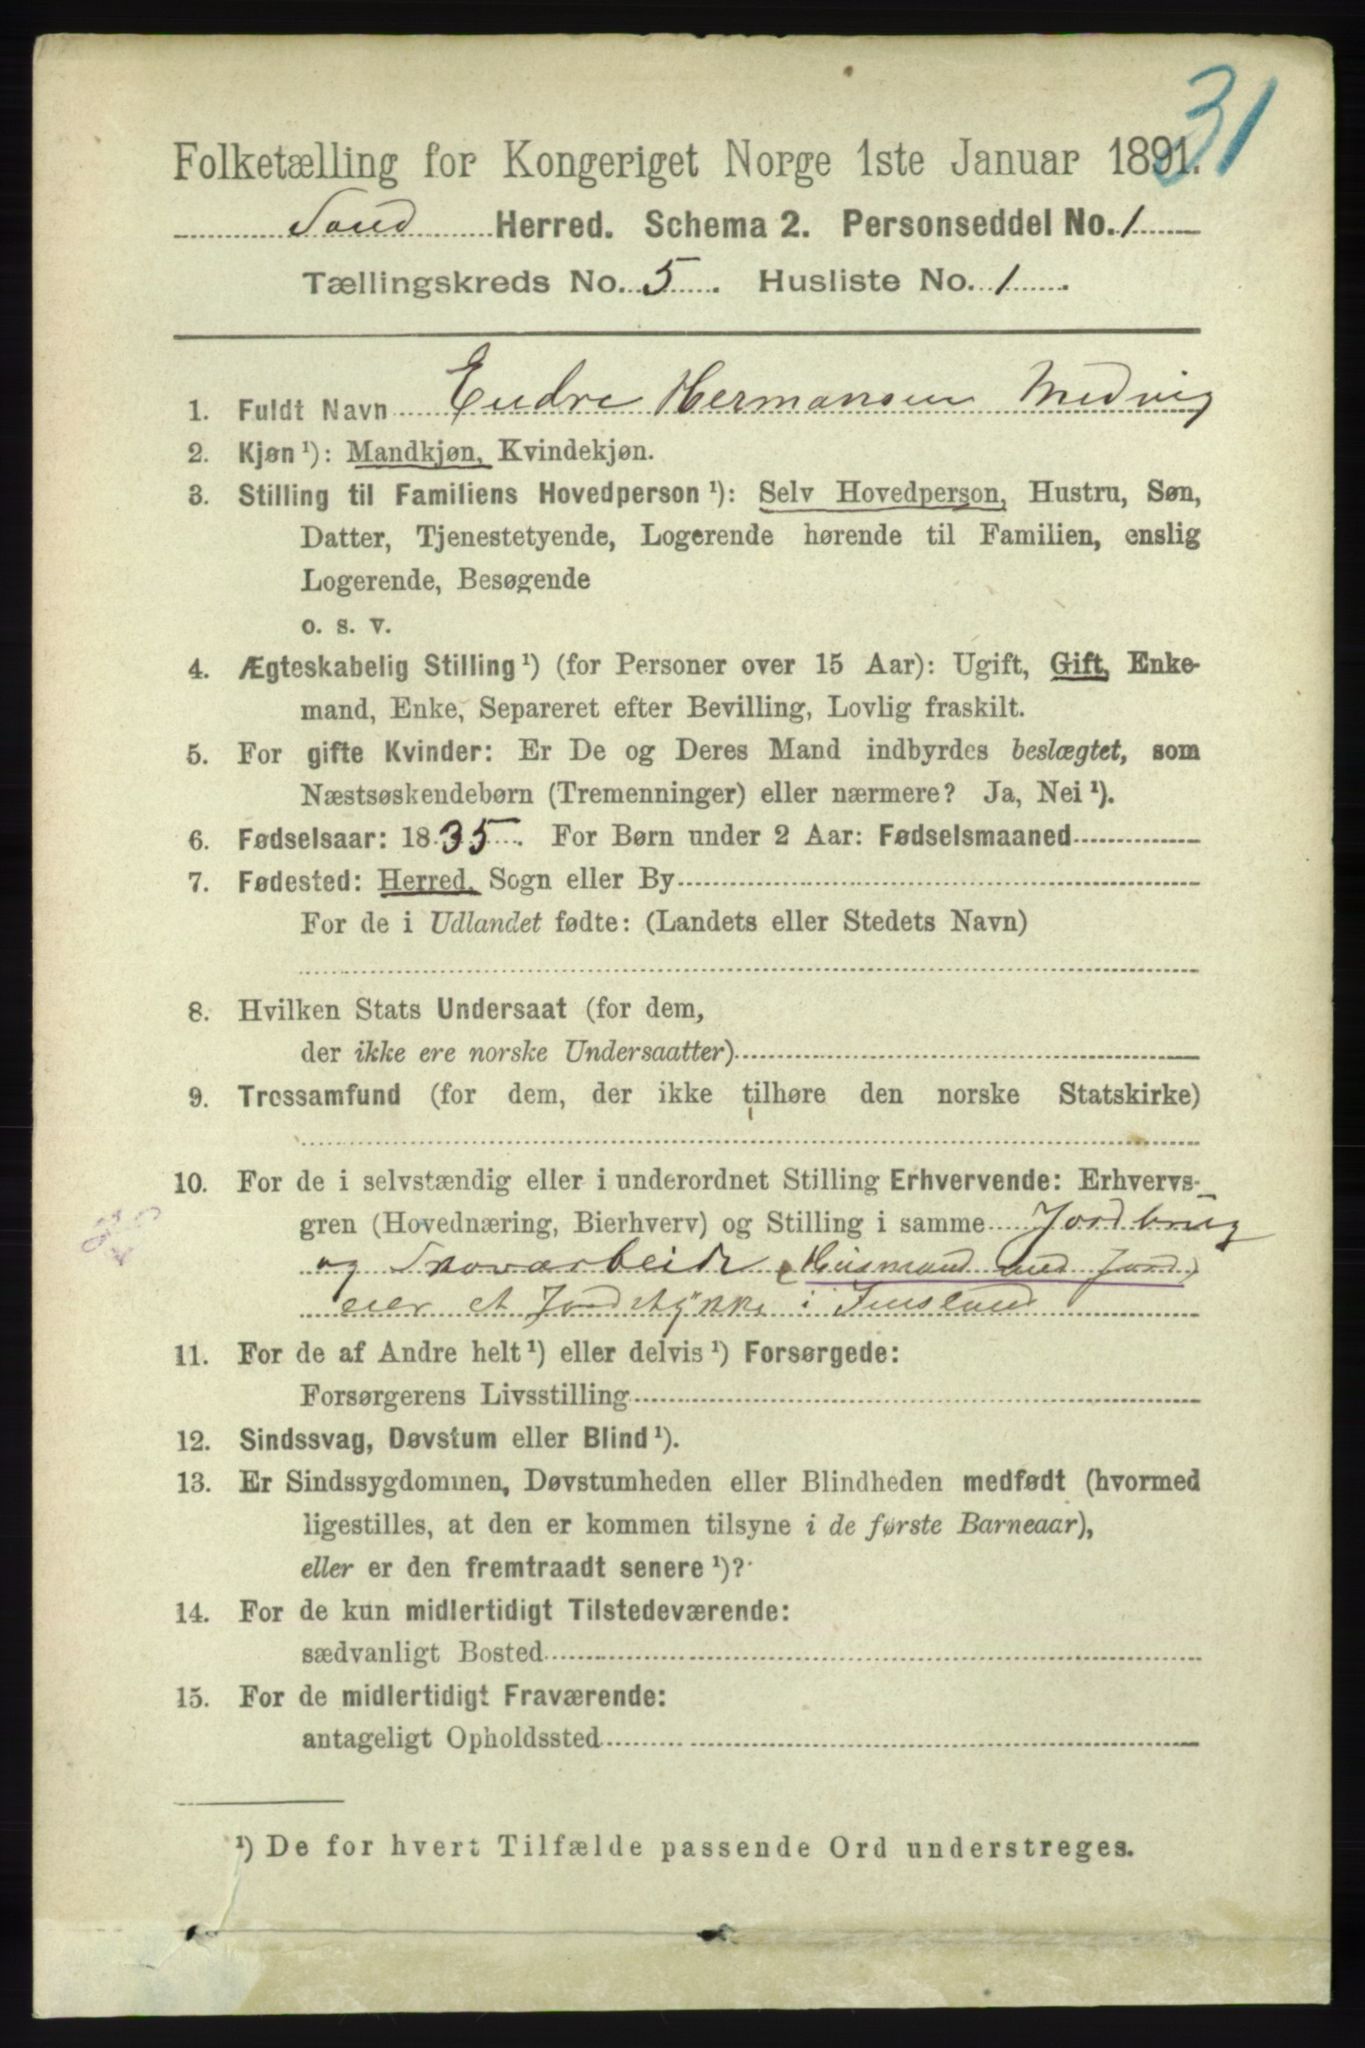 31
Folketælling for Kongeriget Norge 1ste Januar 1891.
Sand Herred. Schema 2. Personseddel No. 1
Tællingskreds No. 5. Husliste No. 1.
1. Fuldt Navn Endre Hermansen Medvig
2. Kjøn ¹): Mandkjøn, Kvindekjøn.
3. Stilling til Familiens Hovedperson ¹): Selv Hovedperson, Hustru, Søn,
Datter, Tjenestetyende, Logerende hørende til Familien, enslig
Logerende, Besøgende
o. s. v.
4. Ægteskabelig Stilling ¹) (for Personer over 15 Aar): Ugift, Gift, Enke-
mand, Enke, Separeret efter Bevilling, Lovlig fraskilt.
5. For gifte Kvinder: Er De og Deres Mand indbyrdes beslægtet, som
Næstsøskendebørn (Tremenninger) eller nærmere? Ja, Nei ¹).
6. Fødselsaar: 1835. For Børn under 2 Aar: Fødselsmaaned
7. Fødested: Herred, Sogn eller By
For de i Udlandet fødte: (Landets eller Stedets Navn)
8. Hvilken Stats Undersaat (for dem,
der ikke ere norske Undersaatter)
9. Trossamfund (for dem, der ikke tilhøre den norske Statskirke)
10. For de i selvstændig eller i underordnet Stilling Erhvervende: Erhvervs-
gren (Hovednæring, Bierhverv) og Stilling i samme Jordbrug
og Skovarbeide (Husmand med Jord)
eier et Jordstykke i
11. For de af Andre helt ¹) eller delvis ¹) Forsørgede:
Forsørgerens Livsstilling
12. Sindssvag, Døvstum eller Blind ¹).
13. Er Sindssygdommen, Døvstumheden eller Blindheden medfødt (hvormed
ligestilles, at den er kommen tilsyne i de første Barneaar),
eller er den fremtraadt senere ¹)?
14. For de kun midlertidigt Tilstedeværende:
sædvanligt Bosted
15. For de midlertidigt Fraværende:
antageligt Opholdssted
¹) De for hvert Tilfælde passende Ord understreges.